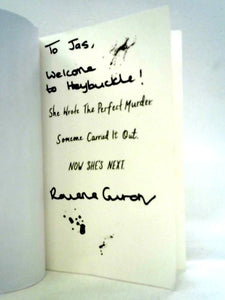 To Jas,
Welcome
to Heybuckle!
She Wrote The Perfect Murder.
Someone Carried It Out.
NOW SHE'S NEXT.
Ravena Guron